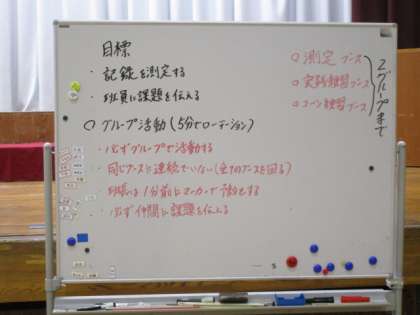 目標
・記録を測定する
・班員に課題を伝える
○測定ブース
○実践練習ブース
○コーン練習ブース
2グループまで
○グループ活動(5分でローテーション)
・必ずグループで活動する
・同じブースに連続でいない(全てのブースを回る)
・班長は1分前にマーカーで
・必ず仲間に課題を伝える